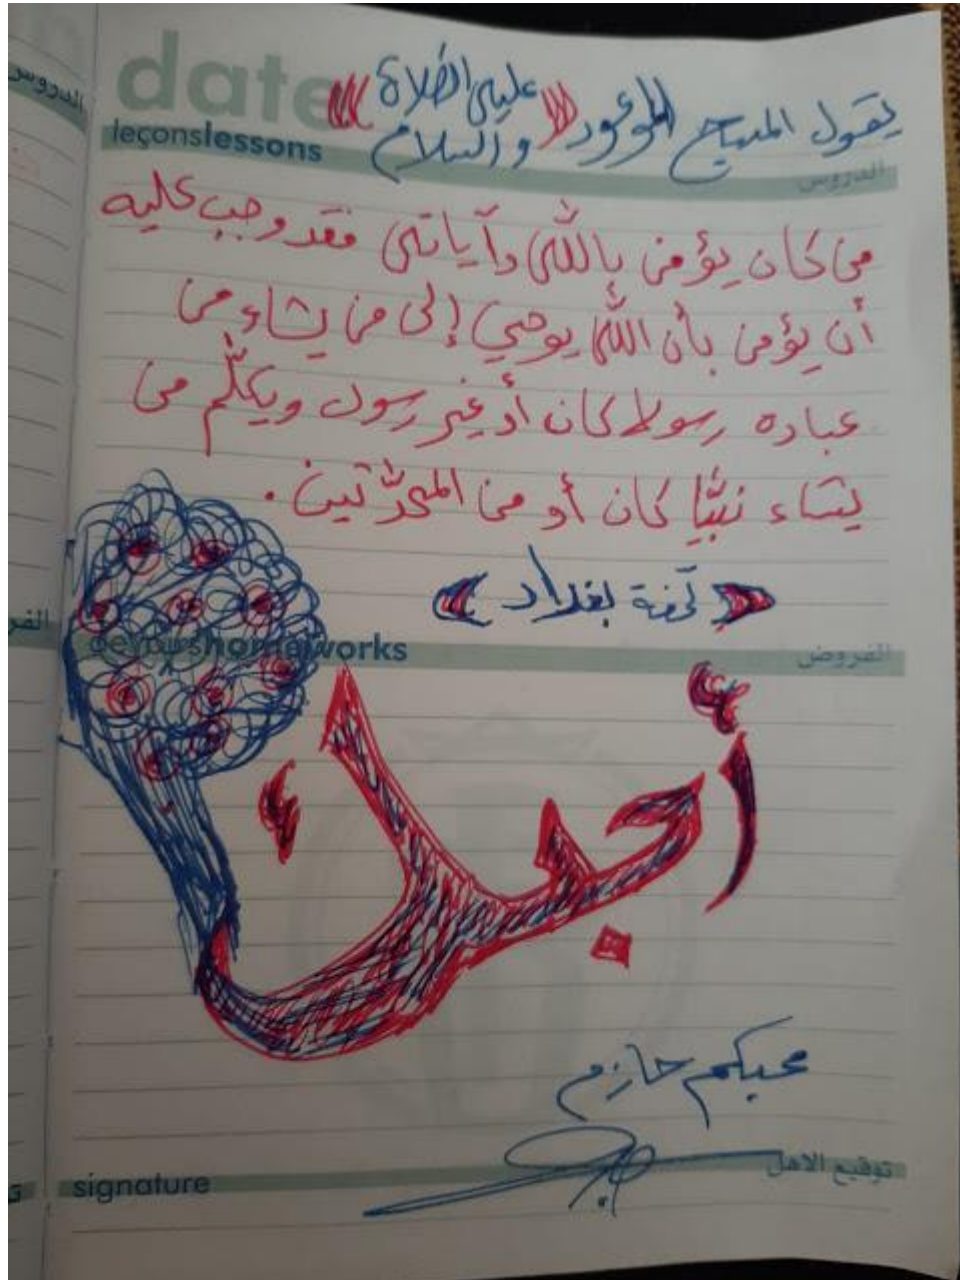 الدروس
date
يقول المسيح الموعود «عليه الصلاة والسلام»
leçonslessons
الدروس
من كان يؤمن بالله وآياته فقد وجب عليه
أن يؤمن بأن الله يوحي إلى من يشاء من
عباده رسولا كان أو غير رسول ويكلّم من
يشاء نبيًّا كان أو من المحدّثين.
«تحفة بغداد»
devoirshomeworks
الفروض
أجل
محبكم حازم
signature
توقيع الاهل